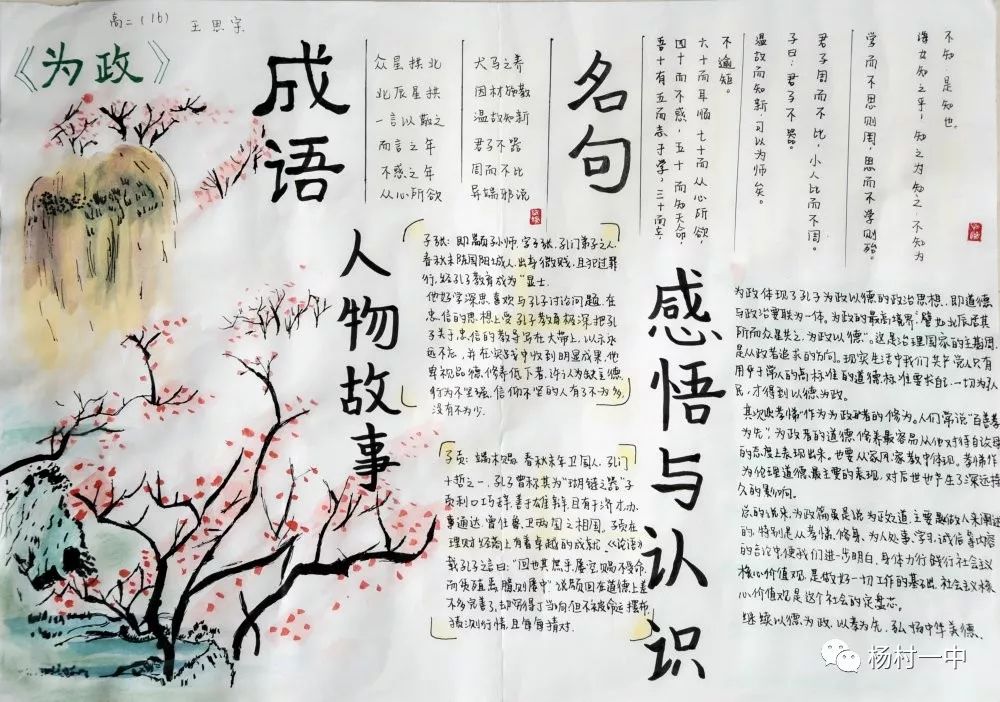 高二（16） 王思宇
《为政》
成语
众星拱北
北辰星拱
一言以蔽之
而言之年
不惑之年
从心所欲
犬马之养
因材施教
温故知新
君子不器
周而不比
异端邪说
名句
吾十有五而志于学，三十而立，
四十而不惑，五十而知天命，
六十而耳顺，七十而从心所欲，
不逾矩。
温故而知新，可以为师矣。
子曰：君子不器。
君子周而不比，小人比而不周。
学而不思则罔，思而不学则殆。
诲女知之乎！知之为知之，不知为
不知，是知也。
人物故事
子张：即颛孙师，字子张，孔门弟子之人
春秋末陈国阳城人，出身微贱，且犯过罪
行，经孔子教育成为"显士.
他好学深思喜欢与孔子讨论问题.在
忠信的思想上受孔子教育极深，把孔
子关于忠信的教导写在大带上，以示永
远不忘，并在实践中收到明显成果，他
卑视品德修养低下者，许认为缺乏德
行为不坚强，信仰不坚的人有了不为多，
没有不为少.
子贡：端木赐，春秋末年卫国人，孔门
十哲之一，孔子曾称其为"瑚琏之器"子
贡利口巧辞，善于雄辩，且有干济才，办
事通达，曾任鲁、卫两国之相国。子贡在
理财经商上有着卓越的成就，《论语》
载孔子之曰："回也其庶乎，屡空，赐不受命，
而货殖焉，臆则屡中"说颜回在道德上差
不多完善了，却穷得丁当响，但不被命运摆布
猜测行情，且每每猜对.
感悟与认识
为政体现了孔子为政以德的政治思想.即道德
与政治要联为一体，为政的最高境界"譬如北辰居其
所而众星共之，为政以德"。这是治理国家的主基调，
是从政者追求的方向。现实生活中我们共产党人只有
用高于常人的高标准的道德标准要求自己，一切为人
民，才得到以德为政。
其次"孝悌"作为为政者的修为，人们常说"百善孝
为先"，为政者的道德修养最容易从他对待自己父母
的态度上表现出来。也要从家风、家教中体现。孝悌作
为伦理道德最主要的表现，对后世也产生了深远持
久的影响。
总的说来，为政篇虽是说为政之道，主要是做人来阐述
的，特别是从孝悌、修身、为人处事、学习、诚信等内容
的言论中使我们进一步明白，身体力行践行社会主义
核心价值观是做好一切工作的基础，社会主义核
心价值观是这个社会的定盘芯。
继续以德为政，以孝为先，弘扬中华美德.
杨村一中